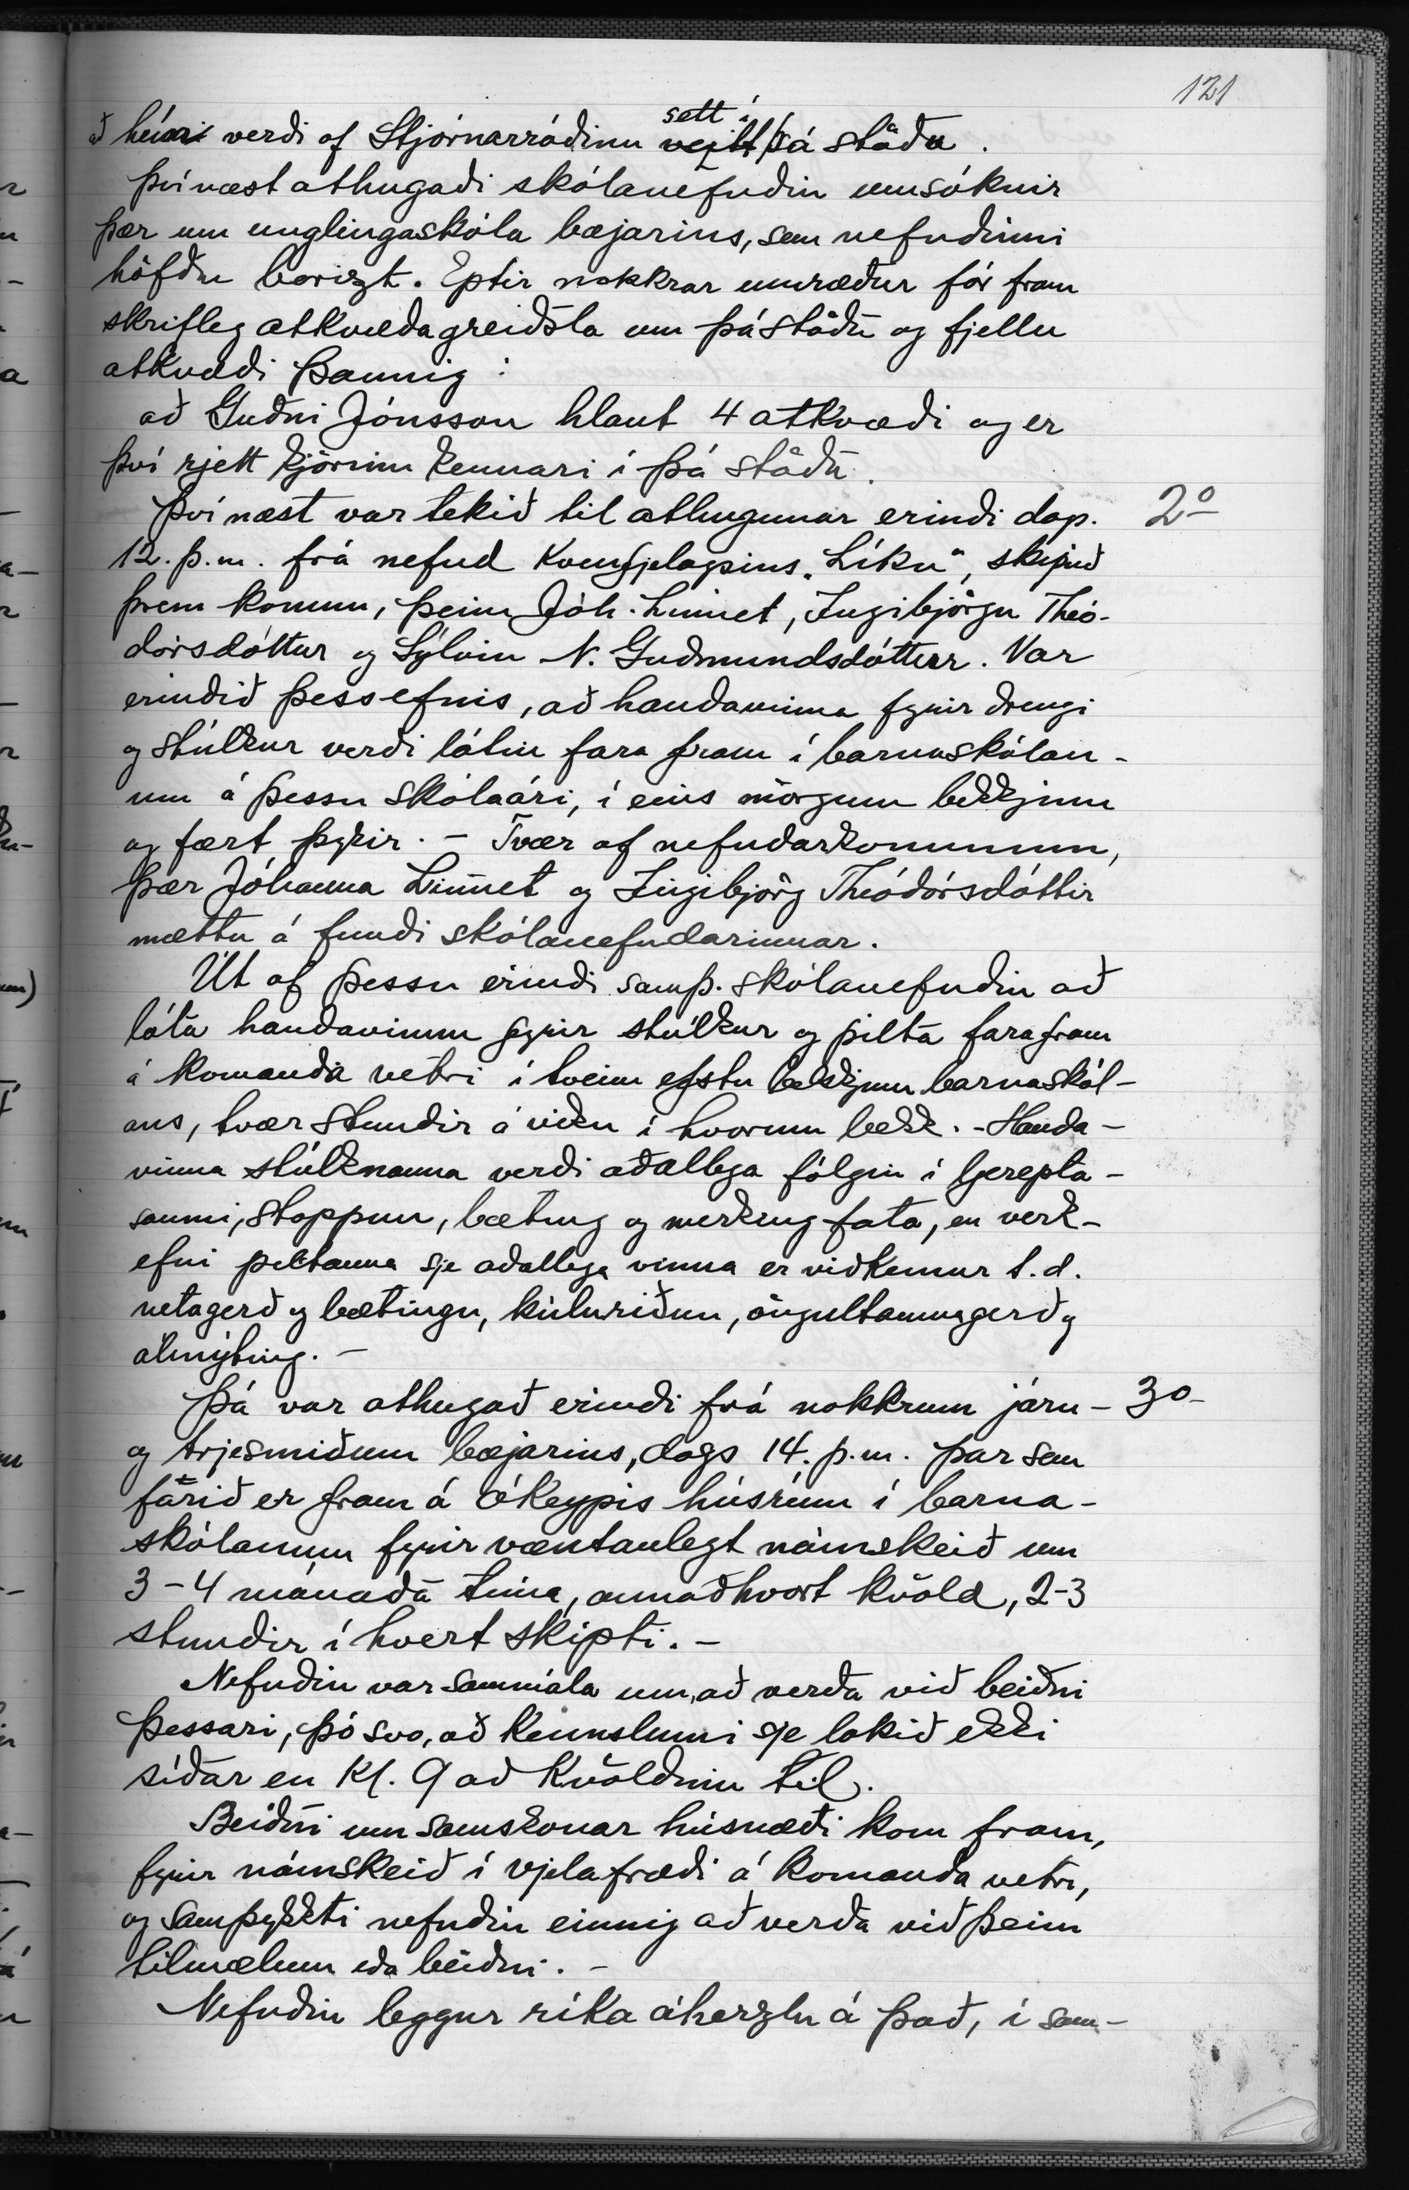 121
að henni verði af Stjórnarráðinu veitt sett í þá stöðu.
Því næst athugaði skólanefndin umsóknir
þær um unglingaskóla bæjarins, sem nefndinni
höfðu borizt. Eptir nokkrar umræður fór fram
skrifleg atkvæðagreiðsla um þá stöðu og fjellu
atkvæði þannig:
að Guðni Jónsson hlaut 4 atkvæði og er
því rjett kjörinn kennari í þá stöðu.
Því næst var tekið til athugunar erindi dags. 2º
12. þ.m. frá nefnd Kvenfjelagsins „Líkn", skipuð
þrem konum, þeim Jóh. Linnet, Ingibjörgu Theó-
dórsdóttur og Sylvíu N. Guðmundsdóttur. Var
erindið þess efnis, að handavinna fyrir drengi
og stúlkur verði látin fara fram í barnaskólan-
um á þessu skólaári, í eins mörgum bekkjum
og fært þykir. - Tvær af nefndarkonunum,
þær Jóhanna Linnet og Ingibjörg Theódórsdóttir
mættu á fundi skólanefndarinnar.
Út af þessu erindi samþ. skólanefndin að
láta handavinnu fyrir stúlkur og pilta fara fram
á komanda vetri í tveim efstu bekkjum barnaskól-
ans, tvær stundir á viku í hvorum bekk. - Handa-
vinna stúlknanna verði aðallega fólgin í ljerepta-
saumi, stoppun, bæting og merking fata, en verk-
efni piltanna sje aðallega vinna er viðkemur t.d.
netagerð og bætingu, kúluriðun, öngultaumagerð og
álnýting. -
Þá var athugað erindi frá nokkrum járn- 3º
og trjesmiðum bæjarins, dags 14. þ.m. þar sem
farið er fram á ókeypis húsrúm í barna-
skólanum fyrir væntanlegt námskeið um
3-4 mánaða tíma, annaðhvort kvöld, 2-3
stundir í hvert skipti. -
Nefndin var sammála um, að verða við beiðni
þessari, þó svo, að kennslunni sje lokið ekki
síðar en kl. 9 að kvöldinu til.
Beiðni um samskonar húsnæði kom fram,
fyrir námskeið í vjelafræði á komanda vetri,
og samþykkti nefndin einnig að verða við þeim
tilmælum eða beiðni. -
Nefndin leggur ríka áherzlu á það, í sam-